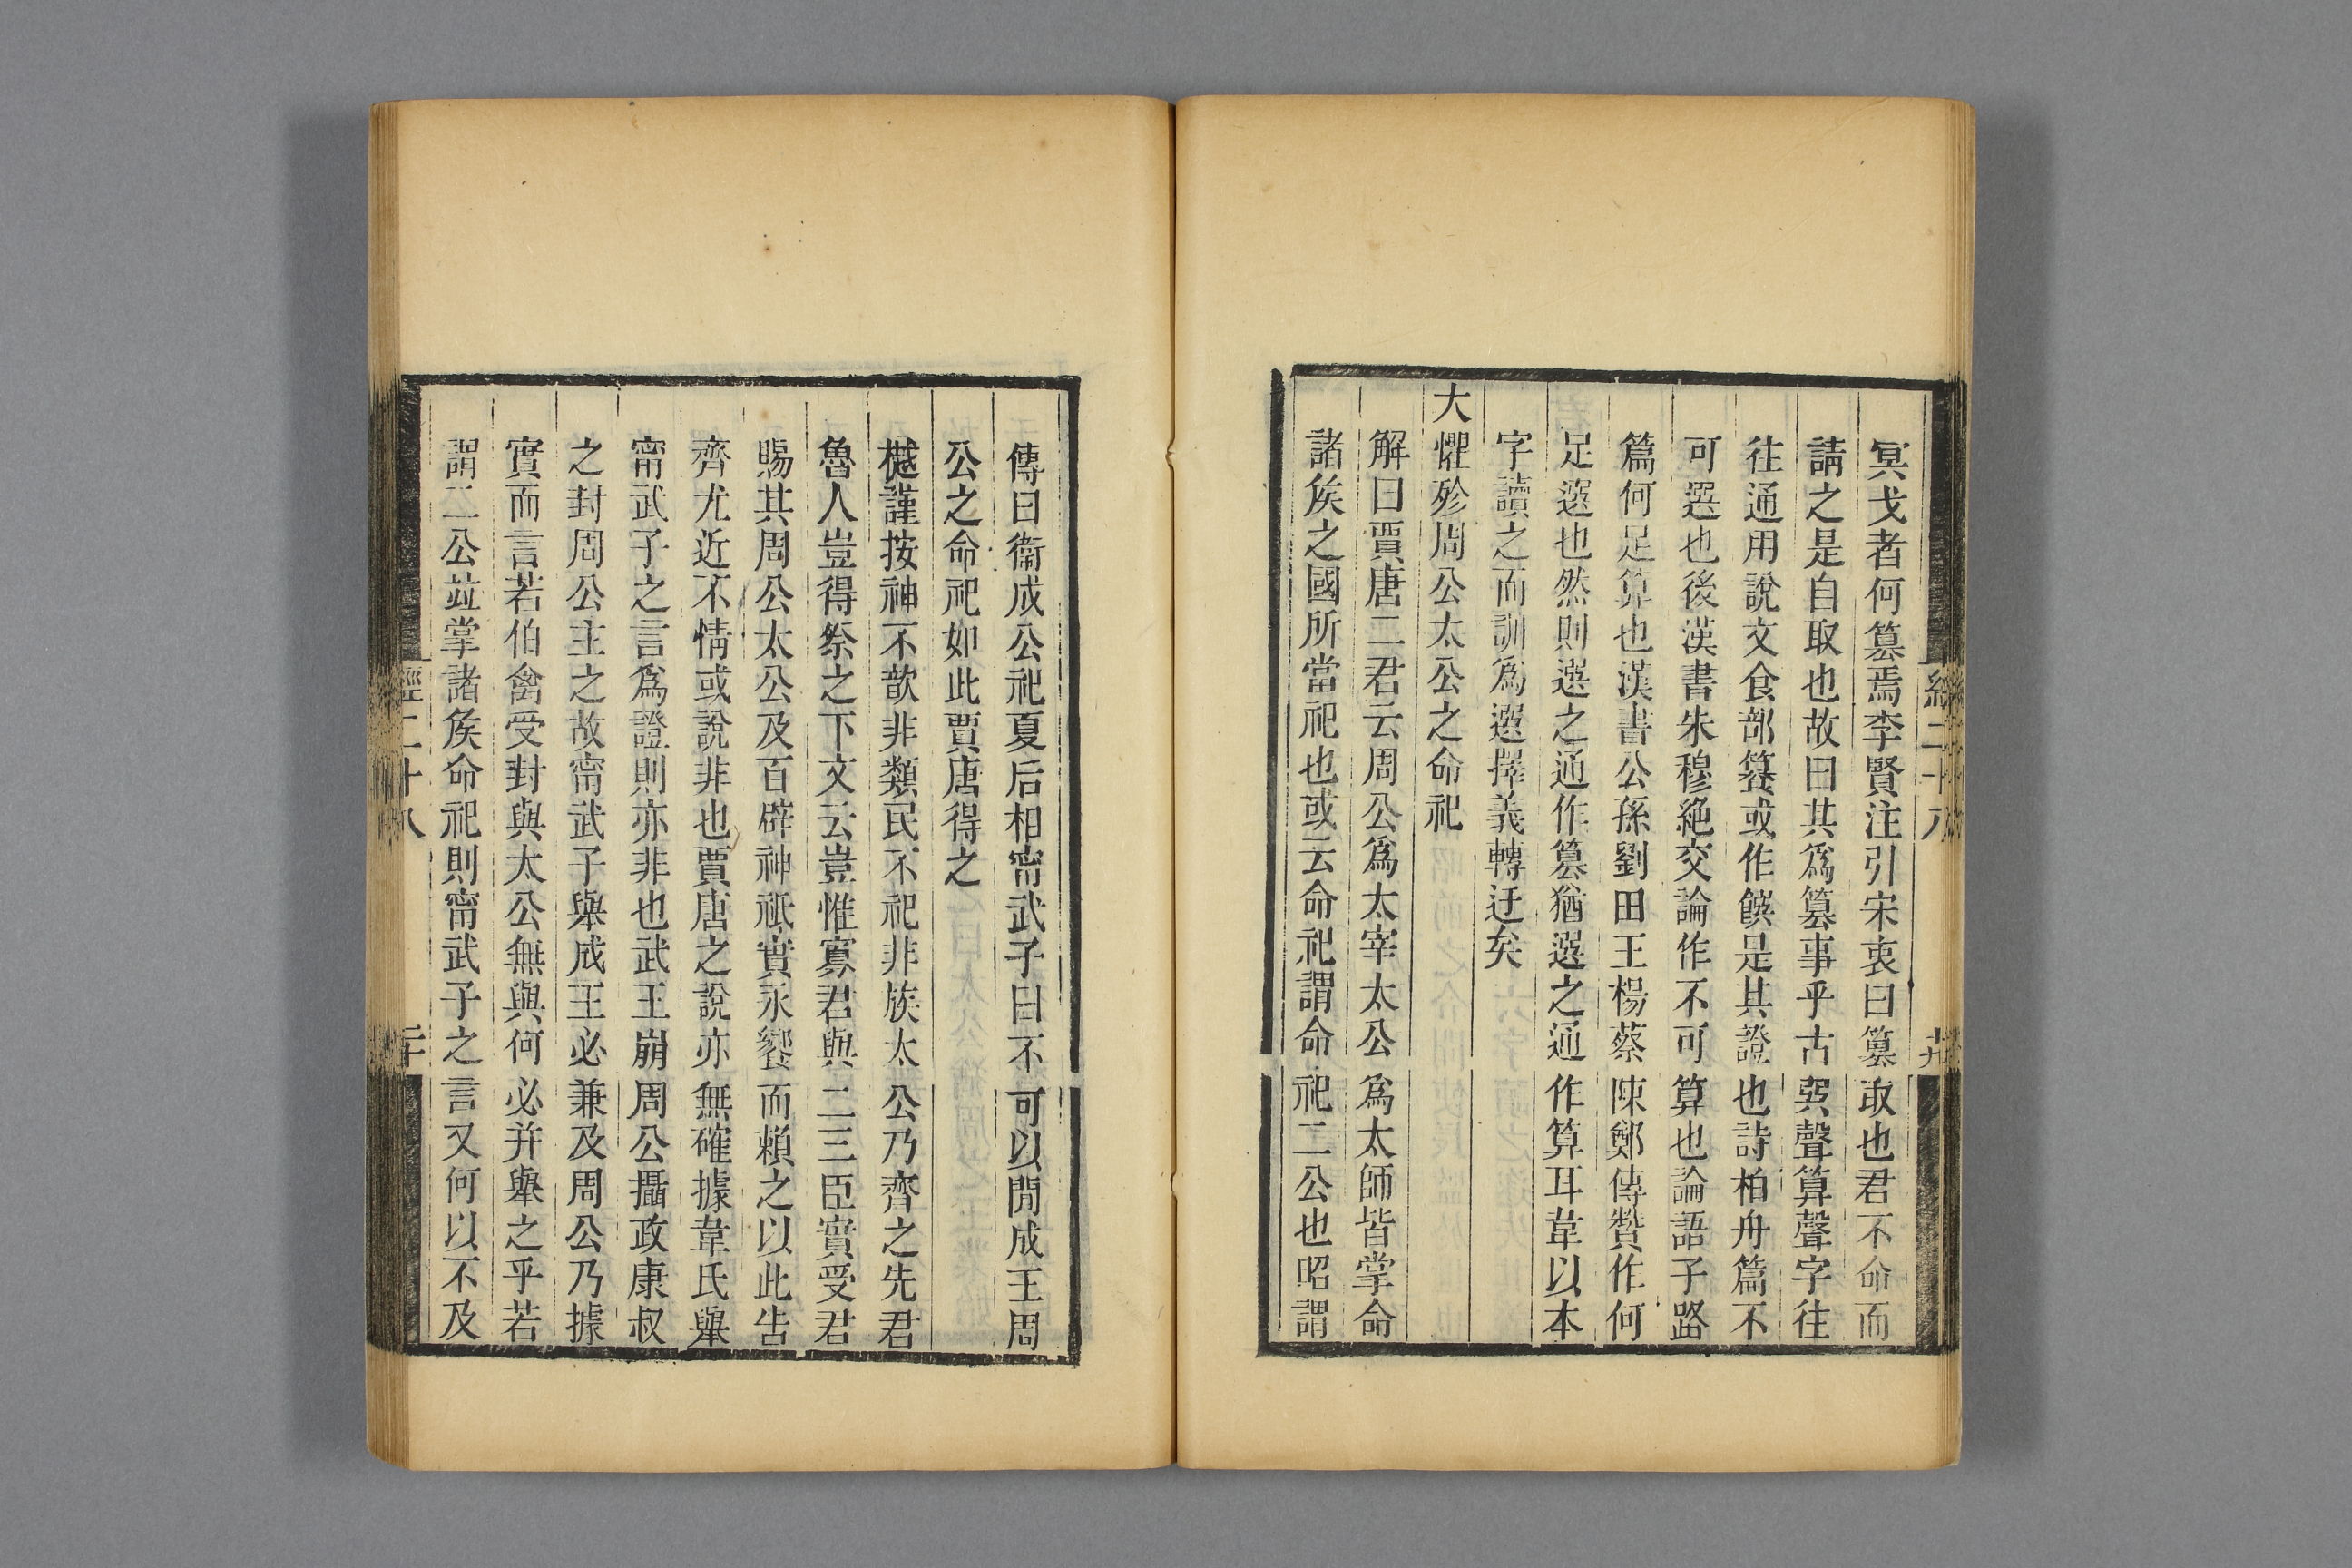 冥戈者何篡焉李賢注引宋衷曰篡取也君不命而
請之是自取也故曰其爲篡事乎古巽聲算聲字往
往通用說文食部籑或作饌是其證也詩柏舟篇不
可選也後漢書朱穆絶交論作不可算也論語子路
篇何足算也漢書公孫劉田王楊蔡陳鄭傳贊作何
足選也然則選之通作篡猶選之通作算耳韋以本
字讀之而訓爲選擇義轉迂矣
大懼殄周公太公之命祀
解曰賈唐二君云周公爲太宰太公爲太師皆掌命
諸矦之國所當祀也或云命祀謂命祀二公也昭謂
傳曰衞成公祀夏后相甯武子曰不可以閒成王周
公之命祀如此賈唐得之
樾謹按神不歆非類民不祀非族太公乃齊之先君
魯人豈得祭之下文云豈惟寡君與二三臣實受君
賜其周公太公及百辟神祇實永饗而賴之以此告
齊尤近不情或說非也賈唐之說亦無確據韋氏舉
甯武子之言爲證則亦非也武王崩周公攝政康叔
之封周公主之故甯武子舉成王必兼及周公乃據
實而言若伯禽受封與太公無與何必并舉之乎若
謂二公竝掌諸矦命祀則甯武子之言又何以不及
經二十八
二十